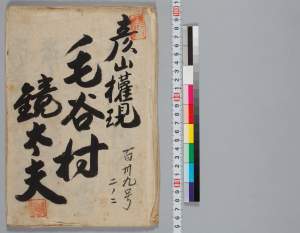 彦山權現
毛谷村
鏡太夫
百卅九号
二ノ二